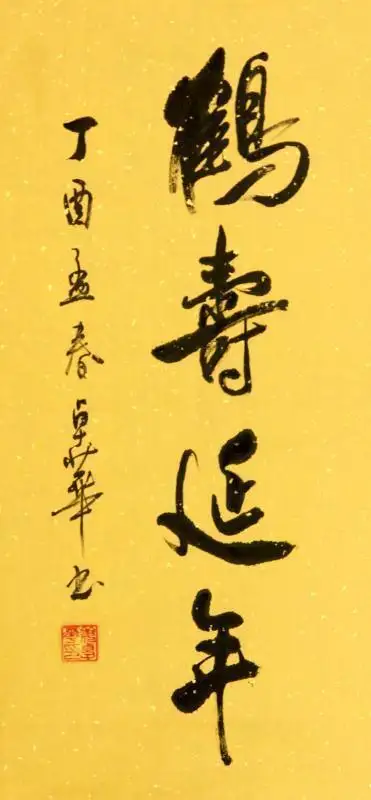 鶴壽延年
丁酉孟春卓華书